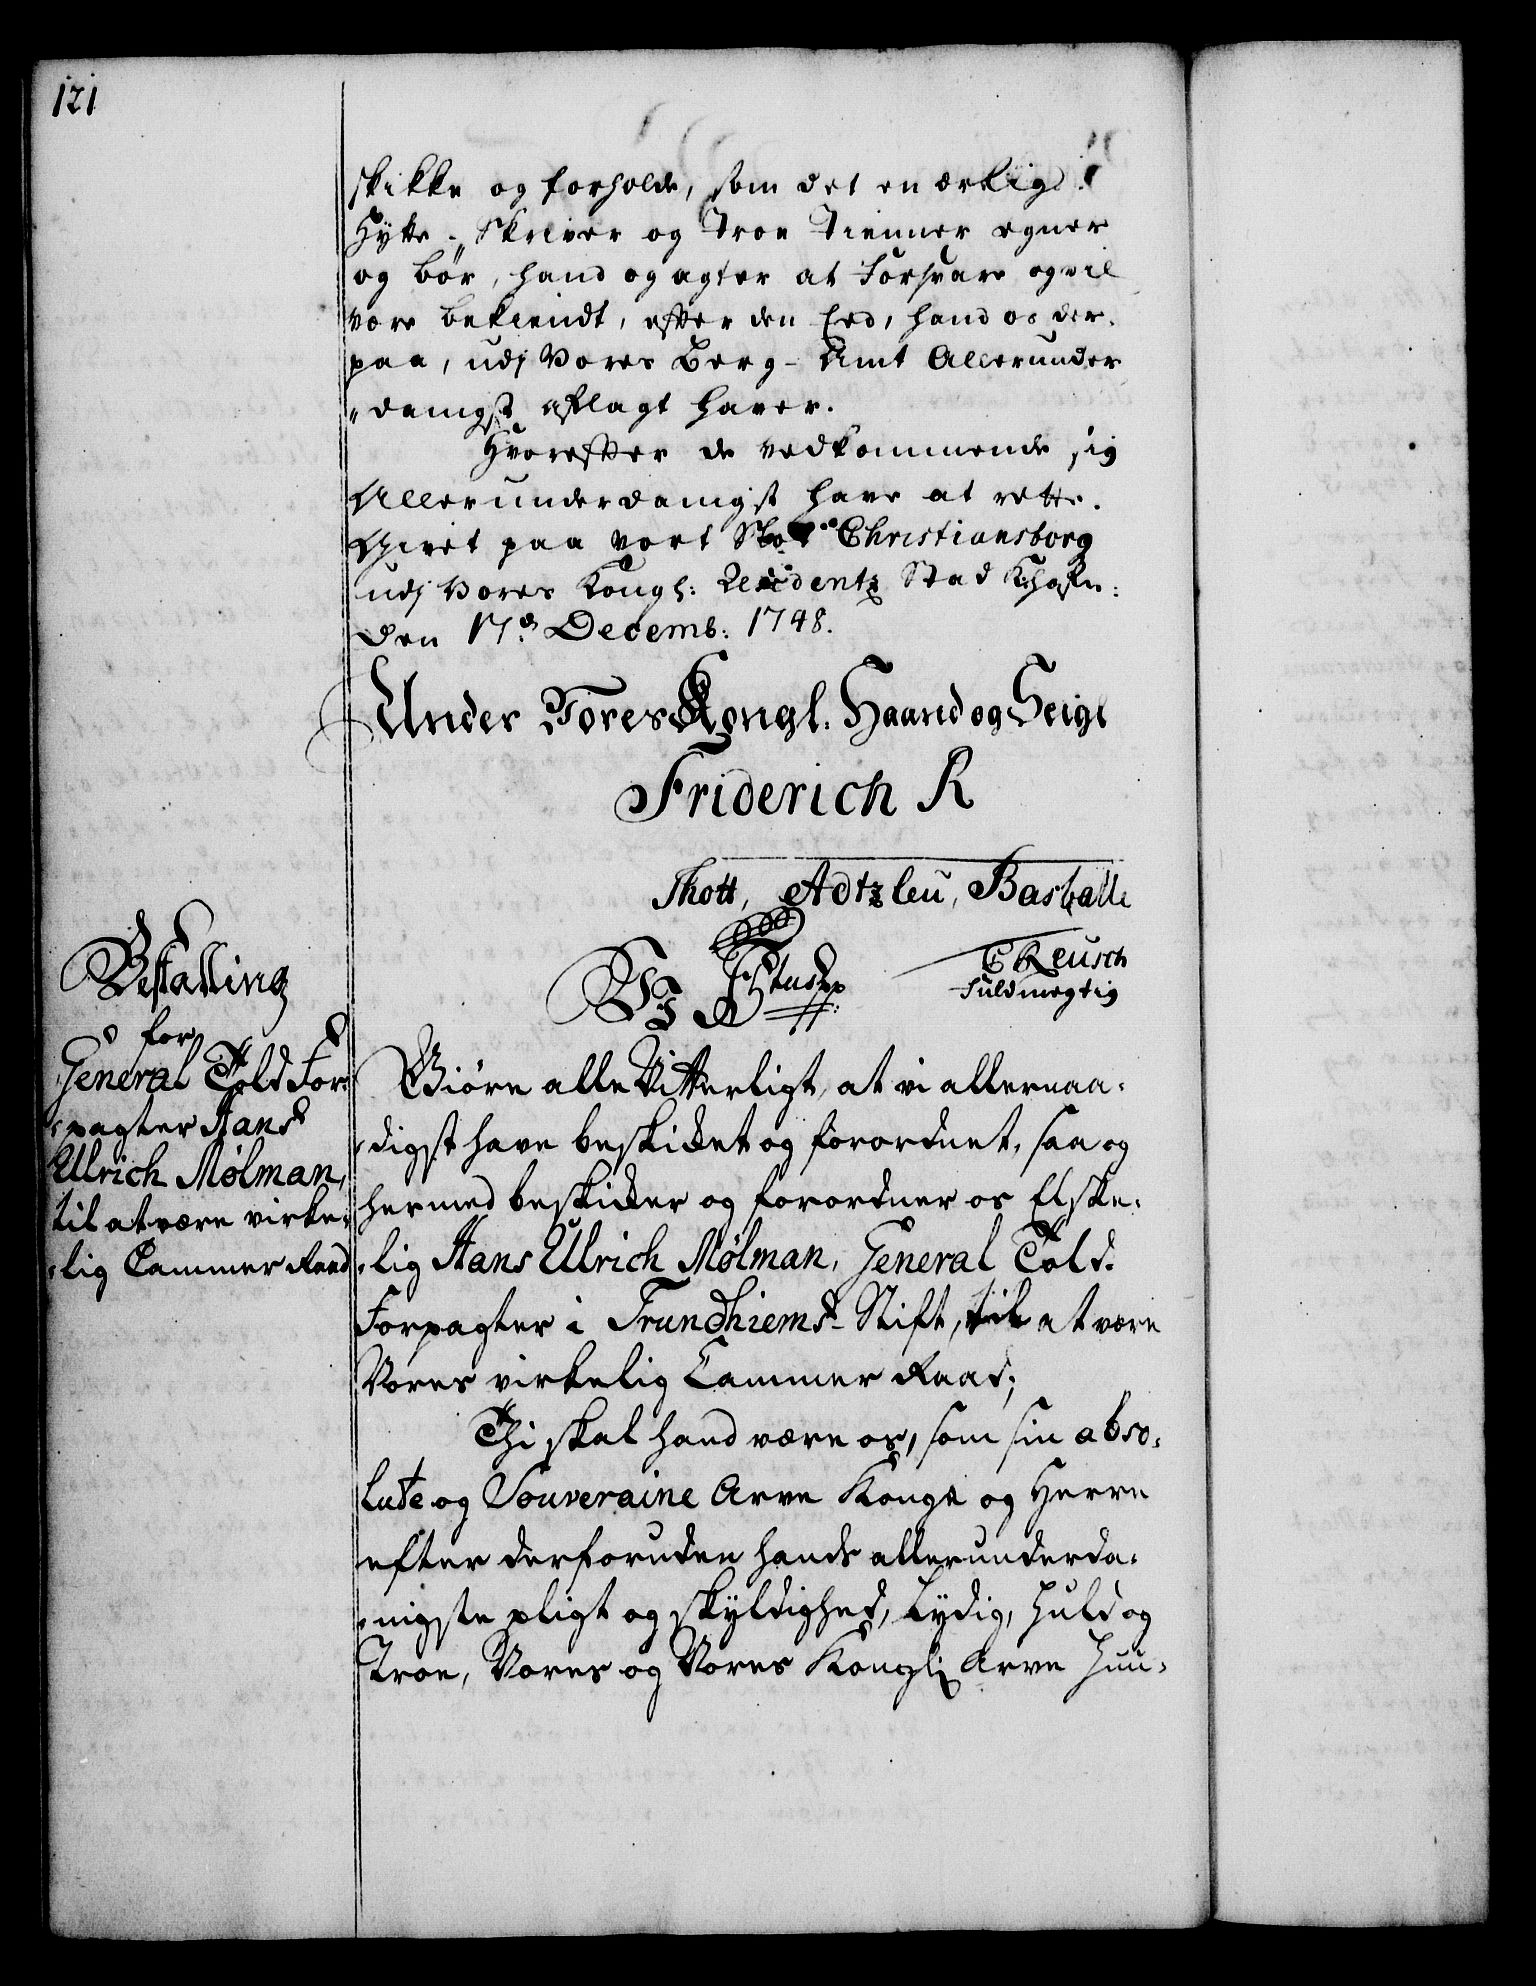 121
skikke og forholde, som det en ærlig
Hytte-Skriver og Troe Tienner egner
og bör, hand og agter at Forsvare og vil
være bekiendt, efter den Eed, hand os der-
paa, udj Vores Berg-Amt Allerunder
"danigst aflagt haver.
Hvorefter de vedkommende sig
Allerunderdanigst have at rette.
Givet paa vort Slot Christiansborg
udj Vores Kongl: Residentz Stad Khafn:
Den 17de Decemb: 1748.
Under Vores Kongl. Haand og Seigl
Friderich R
Thott, Adtzleu, Barballe
C Reusch
Fuldmegtig
Bestalling
for
General Told For-
-pagter Hans
Ulrich Mølman,
til at være virke-
-lig Cammer Raad
Wi F 5tus
Giöre alle Vitterligt, at vi allernaa-
-digst have beskikket og forordnet, saa og
hermed beskikker og forordner os Elske-
-lig Hans Ulrich Mølman, General Told-
Forpagter i Trundhiems Stift, til at være
Vores virkelig Cammer Raad;
Thi skal hand være os, som sin abso-
lute og Souveraine Arve Konge og Herre
efter derforuden hands allerunderda-
-nigste pligt og skyldighed, Lydig, huld og
Troe, Vores og Vores Kongl: Arve Huu-